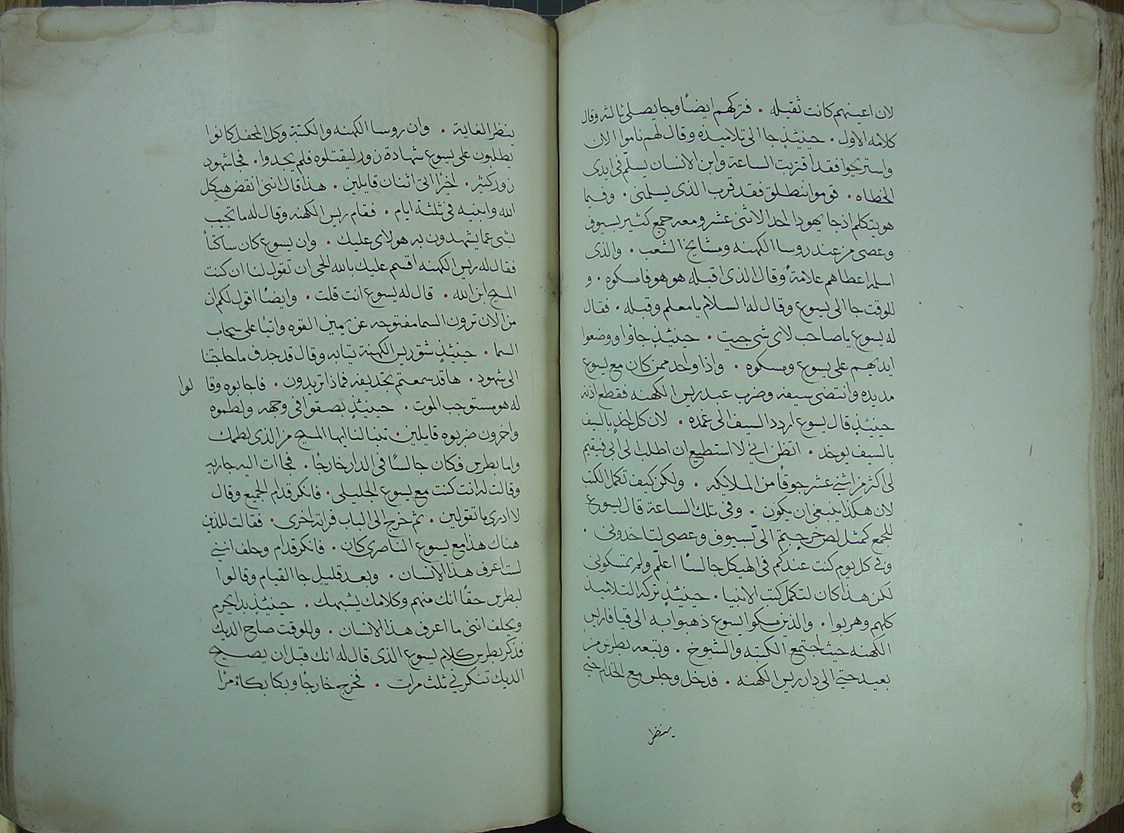 لان اعينهم كانت ثقيله . فتركهم ايضًا وجا يصلي ثالثه وقال
كلامه الاول . حينيذٍ جا الى تلاميذه وقال لهم ناموا الان
واستريحوا فقد اقتربت الساعة وابن الانسان يسلّم في ايدي
الخطاه . قوموا ننطلق فقد قرب الذي يسلمني . وفيما
هو يتكلم اذ جا يهودا احد الاثنى عشر ومعه جمع كثير بسيوف
وعصى من عند روسا الكهنه ومشايخ الشعب . والذي
اسلمه اعطاهم علامةً وقال الذي اقبله هو هو فامسكوه . و
للوقت جا الى يسوع وقال له السلام يا معلم وقبله . فقال
له يسوع يا صاحب لاي شي جيت . حينيذٍ جاؤا ووضعوا
ايديهم على يسوع ومسكوه . واذا واحد ممن كان مع يسوع
مد يده وانتضى سيفه وضرب عبد ريس الكهنه فقطع اذنه
حينيذٍ قال يسوع اردد السيف الى غمده . لان كل اخذ بالسيف
بالسيف يوخد . اتظن اني لا استطيع ان اطلب الى ابي فيقيم
لي اكثر من اثني عشر جوقًا من الملايكه . ولكن كيف تكمل الكتب
لان هكذا ينبغي ان يكون . وفي تلك الساعة قال يسوع
للجمع كمثل لص خرجتم اليّ بسيوف وعصى لتاخدوني .
وفي كل يوم كنت عندكم في الهيكل جالسًا اعلّم ولم تمسكوني
لكن هذا كان لتكمل كتب الانبيا . حينيذٍ تركه التلاميذ
كلهم وهربوا . والذين مسكوا ليسوع ذهبوا به الى قيافا ريس
الكهنه حيث اجتمع الكتبه والشيوخ . وتبعه بطرس من
بعيد حتى الى دار ريس الكهنه . فدخل وجلس مع الخدام حتى
ينظر
ينظر الغاية . وان روسا الكهنه والكتبة وكل المحفل كانوا
يطلبون على يسوع شهادة زور ليقتلوه فلم يجدوا . فجا شهود
زور كثير . اخرًا اتى اثنان قايلين . هذا قال انني انقض هيكل
الله وابنيه في ثلثة ايام . فقام ريس الكهنه وقال له ما تجيب
بشي عما يشهدون به هولاي عليك . وان يسوع كان ساكتًا
فقال له ريس الكهنه اقسم عليك بالله الحي ان تقول لنا ان كنت
المسيح ابن الله . قال له يسوع انت قلت . وايضًا اقول لكم ان
من الان ترون السما مفتوحه عن يمين القوه واتيًا على سحاب
السما . حينيذٍ شق ريس الكهنة ثيابه وقال قد جدف ما حاجتنا
الى شهود . ها قد سمعتم تجديفه فماذا تريدون . فاجابوه وقا لوا
له هو مستوجب الموت . حينيذٍ بصقوا في وجهه ولطموه
واخرون ضربوه قايلين . تنبا لنا ايها المسيح من الذي لطمك
واما بطرس فكان جالسًا في الدار خارجًا . فجاات اليه جاريه
وقالت له انت كنت مع يسوع الجليلي . فانكر قدام الجميع وقال
لا ادري ما تقولين . ثم خرج الى الباب فراته اخرى . فقالت للذين
هناك هذا مع يسوع الناصري كان . فانكر قدام وحلف انني
لست اعرف هذا الانسان . وبعد قليل جا القيام وقالوا
لبطرس حقًا انك منهم وكلامك يشبهك . حينيذٍ بدا يحرم
ويحلف انني ما اعرف هذا الانسان . وللوقت صاح الديك
فذكر بطرس كلام يسوع الذي قال له انك قبل ان يصيح
الديك تنكرني ثلث مرات . فخرج خارجًا وبكا بكاءً مرًّا